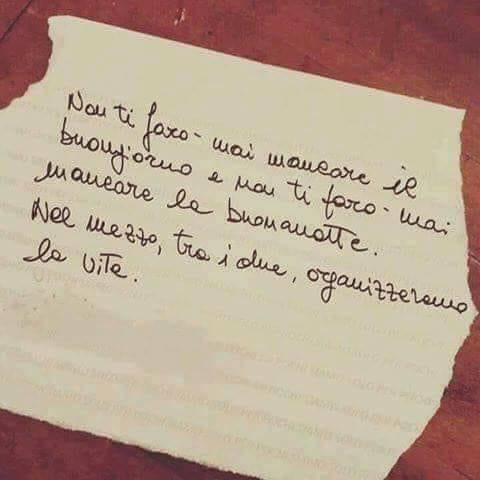 Non ti farò mai mancare il
buongiorno e non ti farò mai
mancare la buonanotte.
Nel mezzo, tra i due, organizzeremo
la vita.